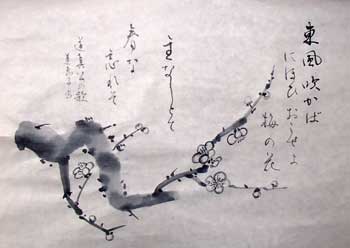 東風吹かば
にほひおこせよ
梅の花
主なしとて
春な忘れそ
道真公の歌